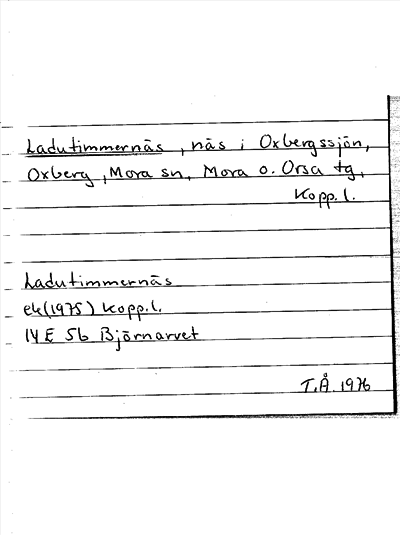 Ladutimmernäs, näs i Oxbergssjön,
Oxberg, Mora sn, Mora o. Orsa tg,
Kopp.l.
Ladutimmernäs
ek(1975) Kopp.l.
14E 5b Björnarvet
T.Å. 1976